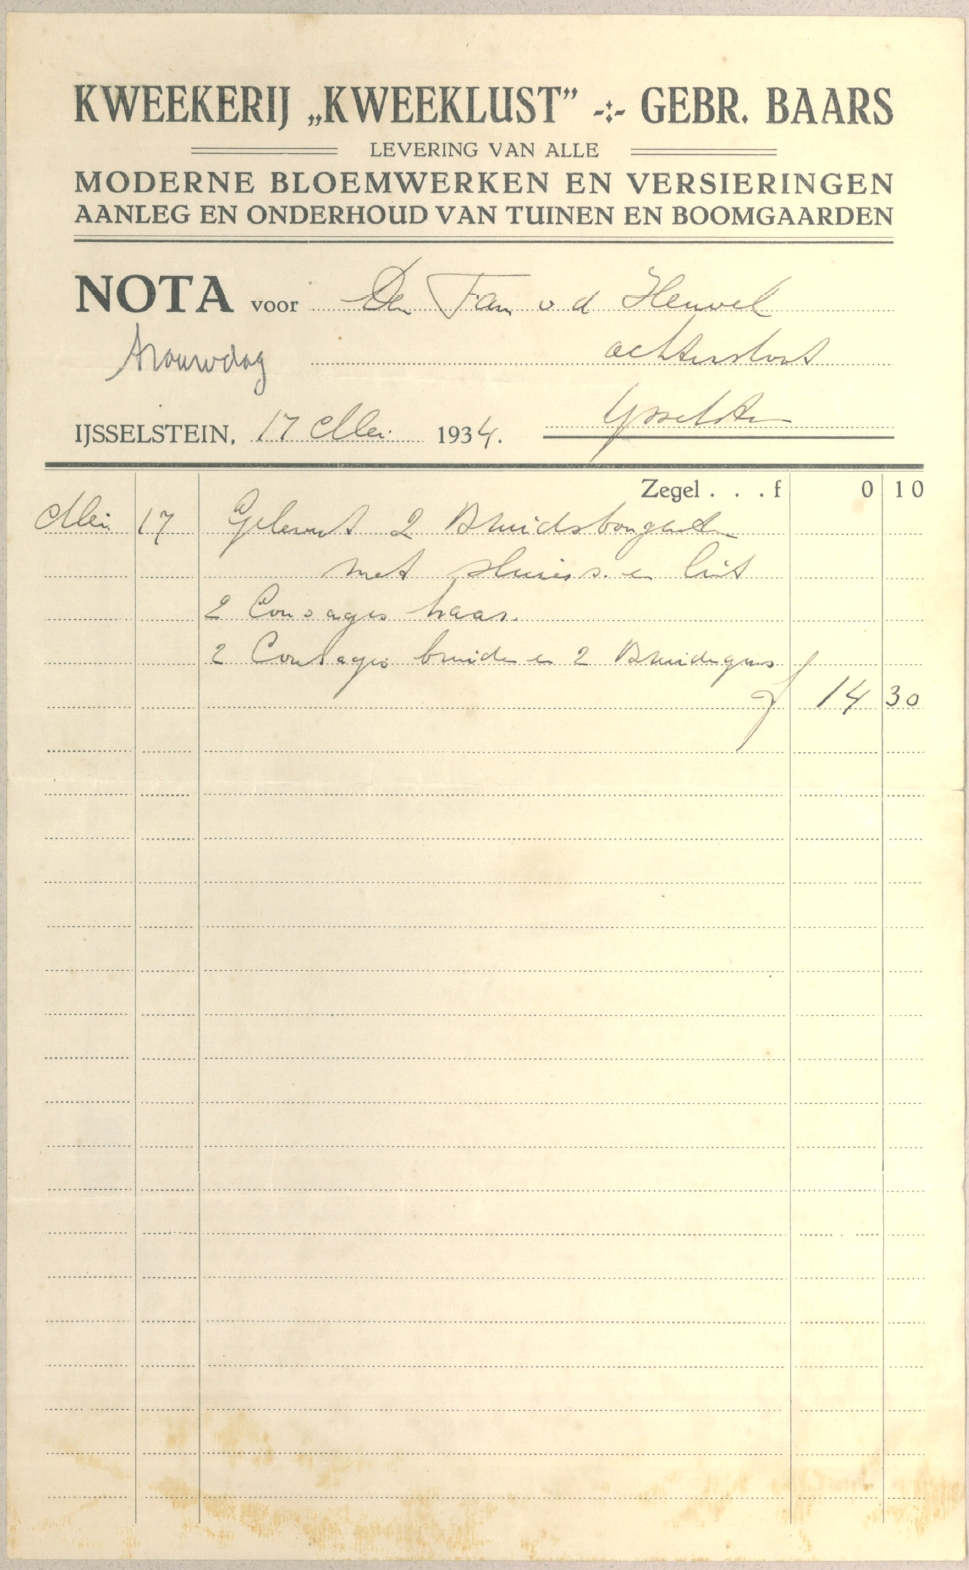 KWEEKERIJ „KWEEKLUST” -:- GEBR. BAARS
LEVERING VAN ALLE
MODERNE BLOEMWERKEN EN VERSIERINGEN
AANLEG EN ONDERHOUD VAN TUINEN EN BOOMGAARDEN
NOTA voor Den Fam v d Heuvel
trouwdag achtersloot
IJSSELSTEIN, 17 Mei 1934. IJsselstein
Zegel . . . f 0 10
Mei 17 Gelevert 2 Bruidsbouquetten
met sluiers en lint
2 Corsages haar.
2 Corsages bruiden en 2 Bruidegoms
f 14 30